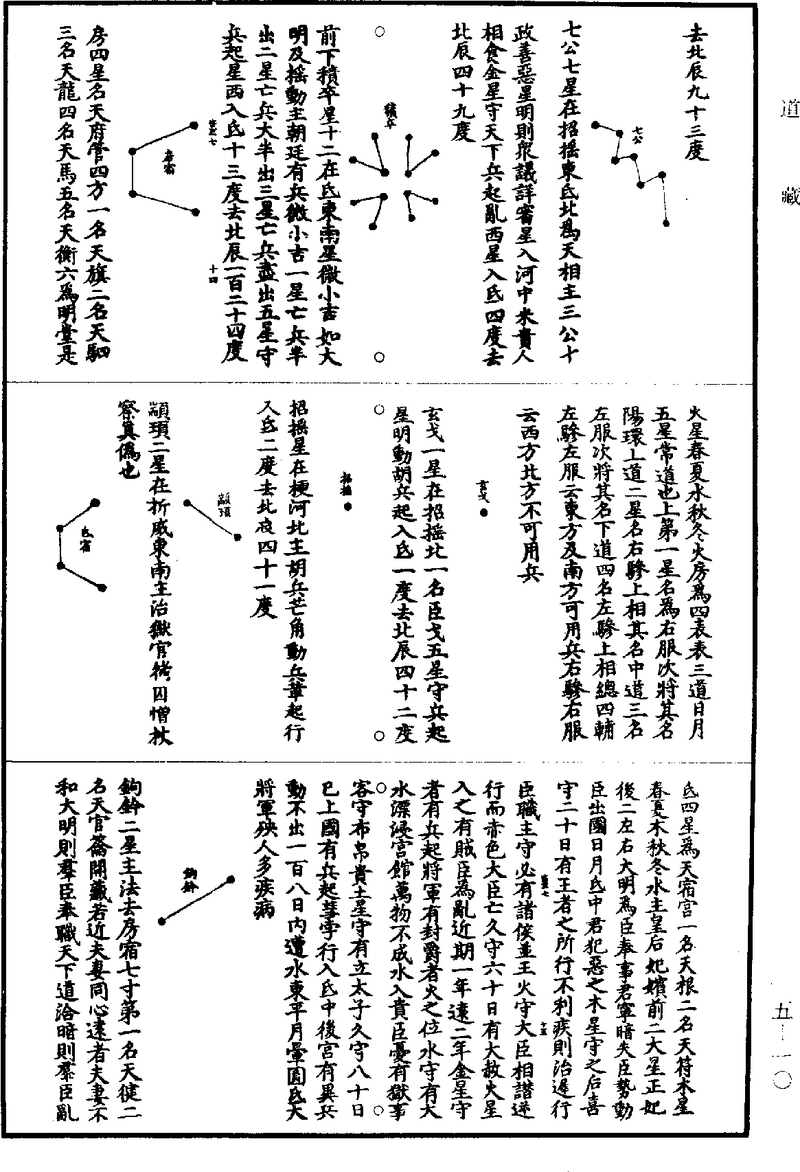 道藏
去北辰九十三度
七公
七公七星在招搖東氐北爲天相主三公十
政善惡星明則衆議詳審星入河中米貴人
相食金星守天下兵起亂西星入氐四度去
北辰四十九度
積卒
前下積卒星十二在氐東南星微小吉如大
明及搖動主朝廷有兵微小吉一星亡兵半
出二星亡兵大半出三星亡兵盡出五星守
兵起星西入氐十三度去北辰一百二十四度
十四
房宿
房四星名天府管四方一名天旗二名天駟
三名天龍四名天馬五名天衡六爲明堂是
火星春夏水秋冬火房爲四表表三道日月
五星常道也上第一星名爲右服次將其名
陽環上道二星名右驂上相其名中道三名
左服次將其名下道四名左驂上相總四輔
左驂左服云東方及南方可用兵右驂右服
云西方北方不可用兵
玄戈
玄戈一星在招搖北一名臣戈五星守兵起
星明動胡兵起入氐一度去北辰四十二度
招搖
招搖星在梗河北主胡兵芒角動兵革起行
入氐二度去北辰四十一度
頏頊
頏頊二星在折威東南主治獄官拷囚憎杖
察真僞也
氐宿
氐四星爲天宿宮一名天根二名天符木星
春夏木秋冬水主皇后妃嬪前二大星正妃
後二左右大明爲臣奉事君寧暗失臣勢動
臣出國日月氐中君犯惡之木星守之后喜
守二十日有王者之所行不利疾則治遲行
臣職主守必有諸侯並王火守大臣相譖逆
行而赤色大臣亡久守六十日有大赦火星
入之有賊臣爲亂近期一年遠二年金星守
者有兵起將軍有封爵者火之位水守有大
水漂浸宮館萬物不成水入貴臣憂有獄事
客守布帛貴土星守有立太子久守八十日
已上國有兵起彗孛行入氐中後宮有異兵
動不出一百八日內遭水東平月暈圓氐大
將軍殃人多疾病
鉤鈐
鉤鈐二星主法去房宿七寸第一名天徤二
名天官籥開藏若近夫妻同心遠者夫妻不
和大明則羣臣奉職天下道洽暗則羣臣亂
五—一〇